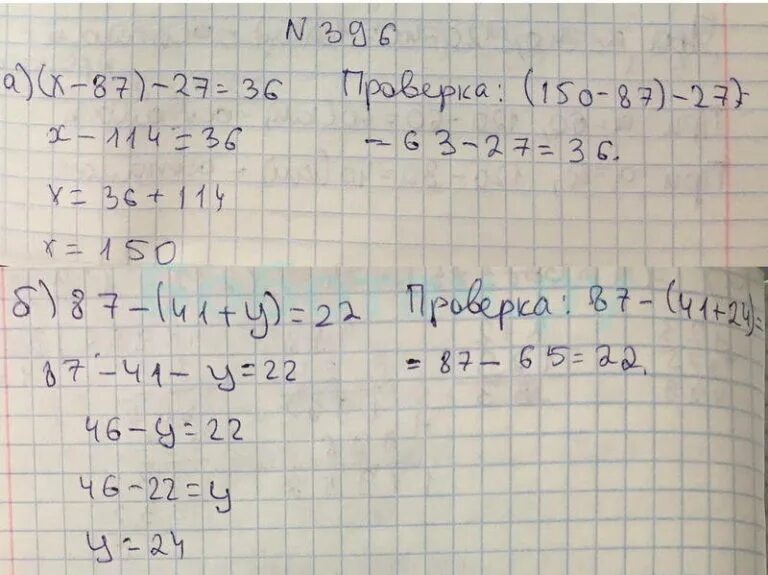 N 396
а) (x-87)-27=36 Проверка: (150-87)-27)=
x-114=36 = 63-27=36.
x=36+114
x=150
б) 87-(41+y)=22 Проверка: 87-(41+24)=
87-41-y=22 = 87-65=22.
46-y=22
46-22=y
y=24